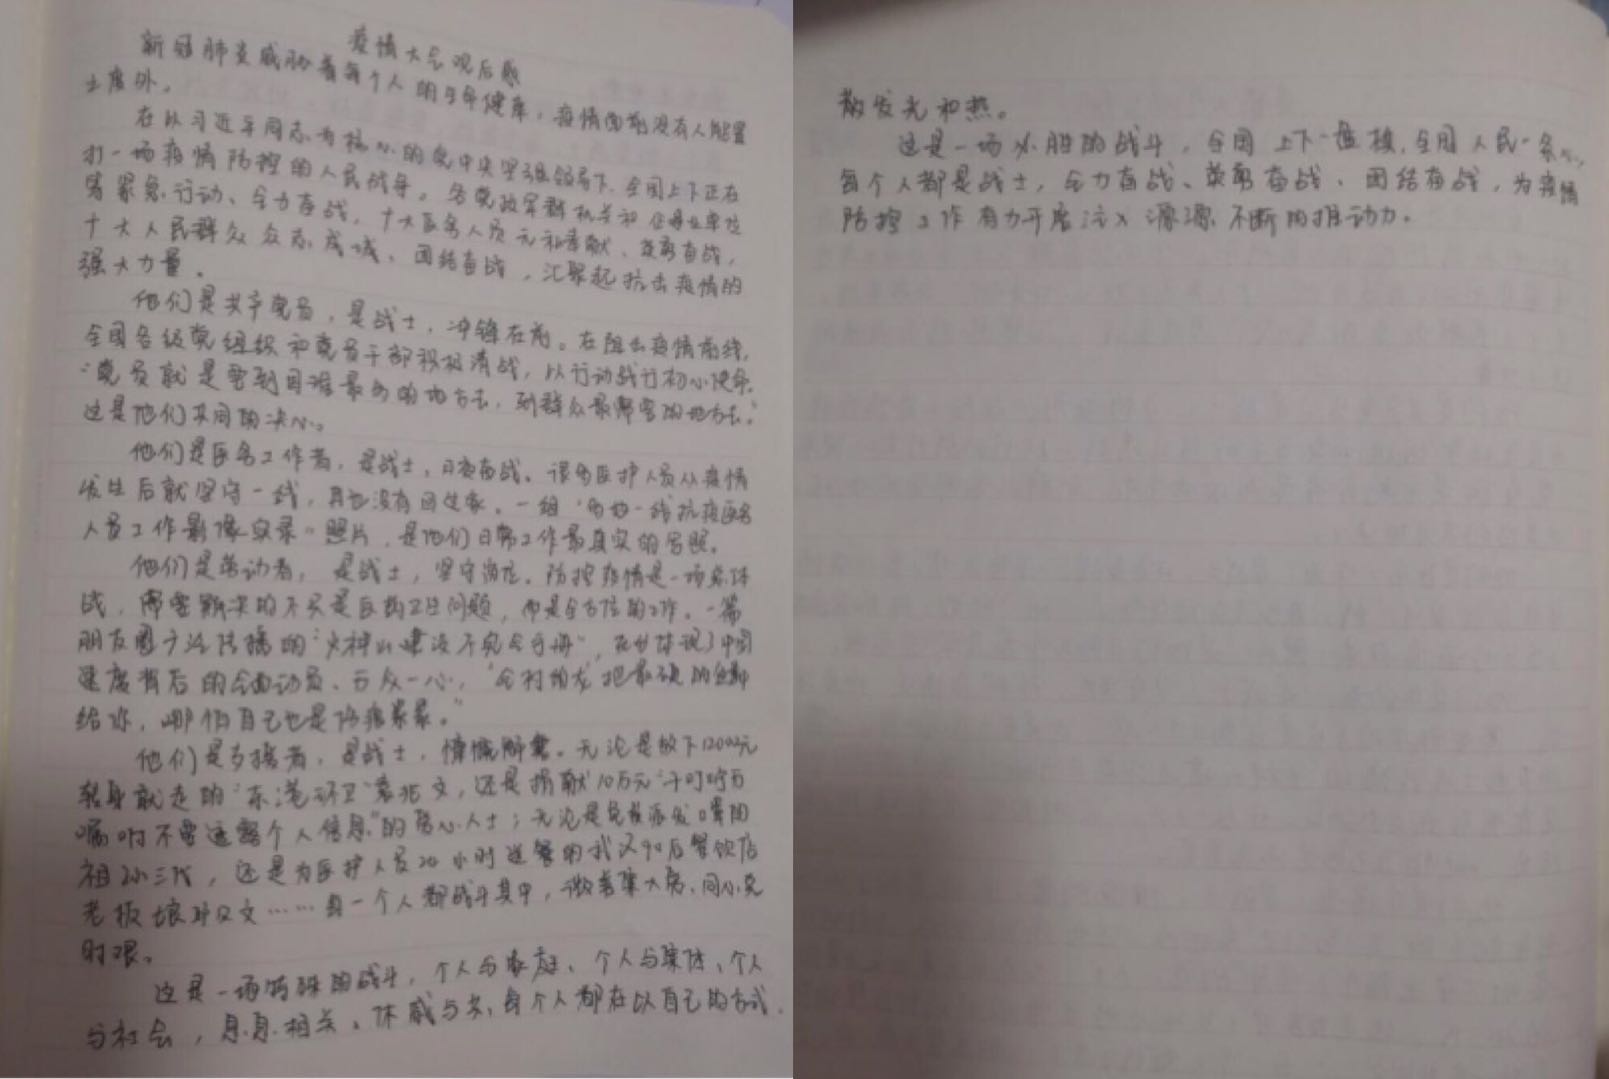 疫情大考观后感
新冠肺炎威胁着每个人的生命健康，疫情面前没有人能置
土度外。
在以习近平同志为核心的党中央坚强领导下，全国上下正在
打一场疫情防控的人民战争。各党政军群机关和企事业单位
等紧急行动、全力奋战，广大医务人员无私奉献、英勇奋战，
广大人民群众众志成城、团结奋战，汇聚起抗击疫情的
强大力量。
他们是共产党员，是战士，冲锋在前。在阻击疫情前线，
全国各级党组织和党员干部积极请战，以行动践行初心使命。
“党员就是要到困难最多的地方去，到群众最需要的地方去。”
这是他们共同的决心。
他们是医务工作者，是战士，日夜奋战。很多医护人员从疫情
发生后就坚守一线，再也没有回过家。一组“多地一线抗疫医务
人员工作影像实录”照片，是他们日常工作最真实的写照。
他们是劳动者，是战士，坚守岗位。防控疫情是一场总体
战，需要解决的不只是医药卫生问题，而是全方位的工作。一篇
朋友圈广泛传播的“火神山建设不完全手册”，充分体现了中国
速度背后的全面动员、万众一心，“全村的龙把最硬的鳞都
给你，哪怕自己也是伤痕累累。”
他们是支援者，是战士，慷慨解囊。无论是放下12000元
转身就走的“东港环卫”袁兆文，还是捐献10万元“千叮咛万
嘱咐不要透露个人信息”的爱心人士；无论是免费派发口罩的
祖孙三代，还是为医护人员24小时送餐的武汉90后餐饮店
老板娘邱贝文……每一个人都战斗其中，微善集大爱、同心克
时艰。
这是一场特殊的战斗，个人与家庭、个人与集体、个人
与社会，息息相关、休戚与共，每个人都在以自己的方式
散发光和热。
这是一场必胜的战斗，全国上下一盘棋，全国人民一条心，
每个人都是战士，全力奋战、英勇奋战、团结奋战，为疫情
防控工作有力开展注入源源不断的推动力。